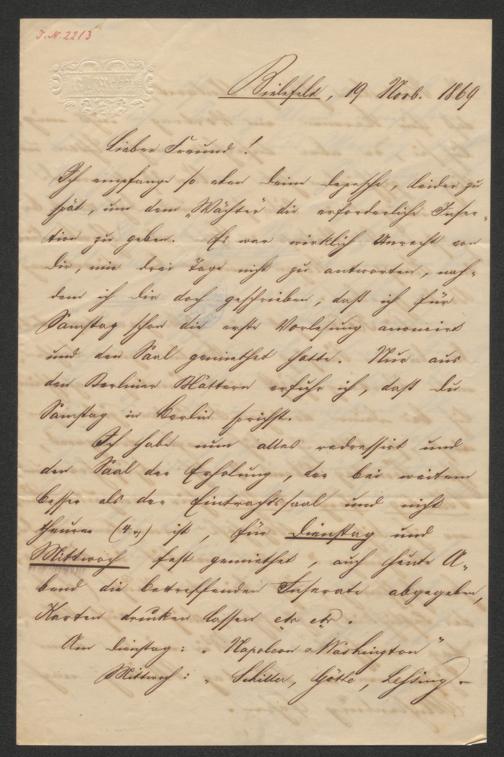 J.N. 2213
Bielefeld, 19 Novb. 1869
Lieber Freund!
Ich empfange so eben Deine Depesche, leider zu
spät, um dem „Wächter“ die erforderliche Inser-
tion zu geben. Es war wirklich Unrecht von
Dir, mir drei Tage nicht zu antworten, nach-
dem ich Dir doch geschrieben, daß ich für
Samstag schon die erste Vorlesung annoncirt
und den Saal gemiethet hatte. Nur aus
den Berliner Blättern erfuhr ich, daß Du
Samstag in Berlin sprichst.
Ich habe nun alles redressirt und
den Saal der Erholung, der bei weitem
besser als der Eintrachtssaal und nicht
theurer (4 ) ist, für Dienstag und
Mittwoch fest gemiethet, auch heute A-
bend die betreffenden Inserate abgegeben,
Karten drucken lassen etc etc.
Am Dienstag: „Napoleon Washington“
Mittwoch: „Schiller, Göthe, Leßing –